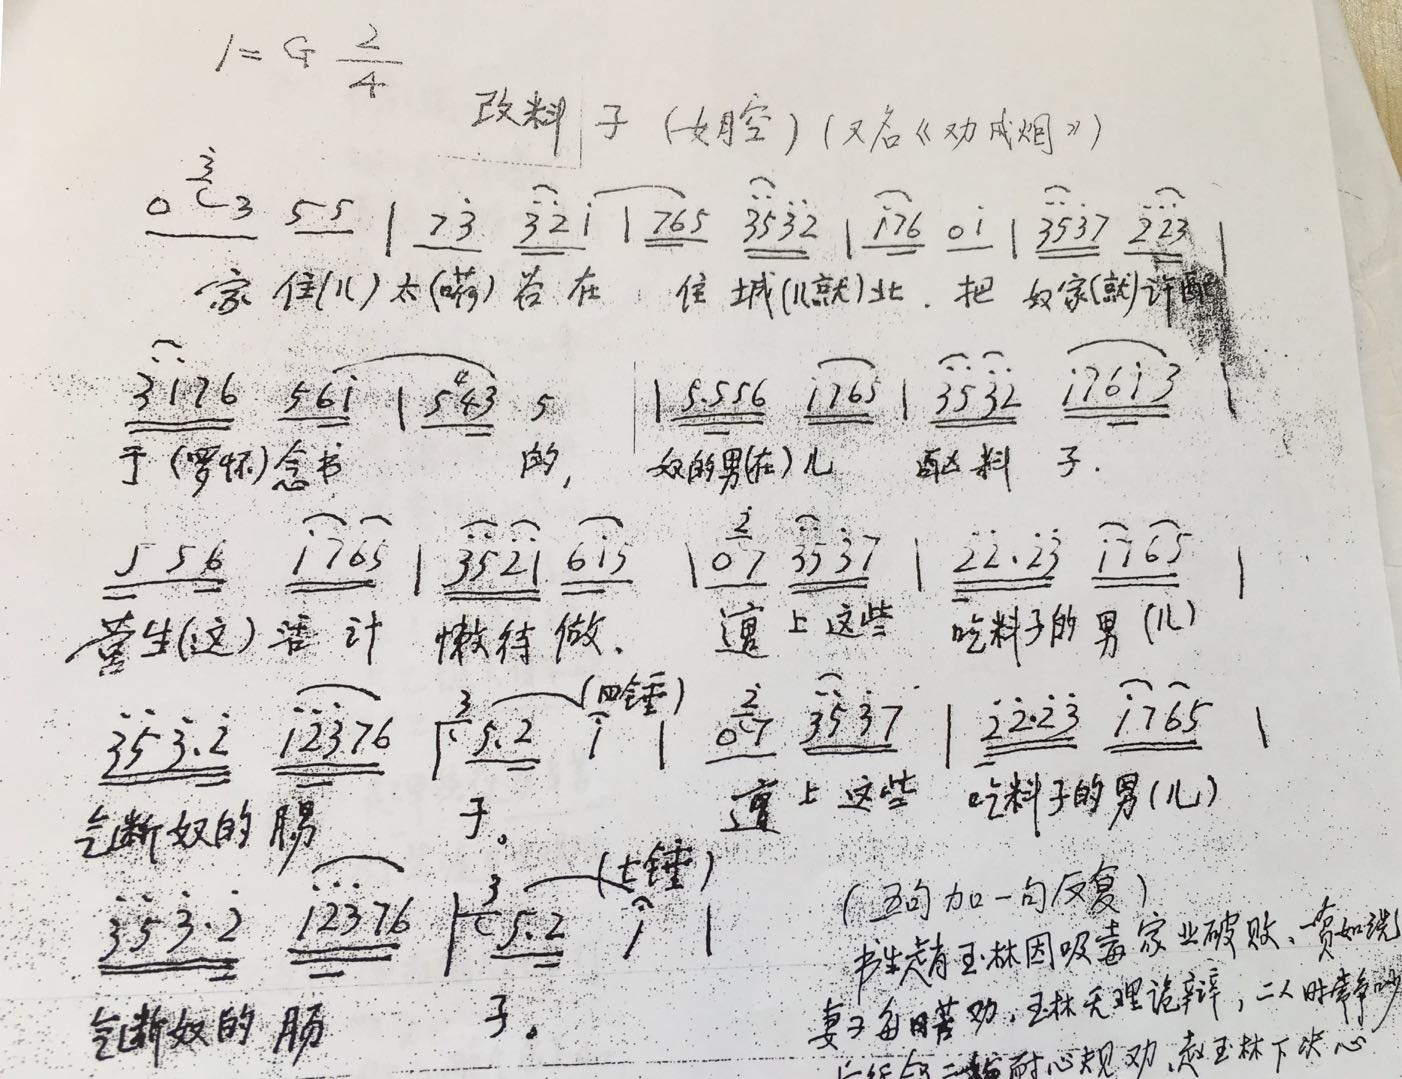 1=G 2/4
改料子(女腔)(又名《劝戒烟》)
0 3 55 | 73 321 | 765 3532 | 176 01 | 3537 223 |
家 住(儿) 太(嗬) 谷 在 住 城(儿就)北. 把 奴家(就)许配
3176 561 | 543 5 | 5.556 1765 | 3532 17613 |
于(罗怀)念书 的, 奴的男(在)儿 料 子.
5 56 1765 | 3521 615 | 07 3537 | 22.23 1765 |
营生(这)活 计 懒待做. 遭 上 这些 吃料子的 男(儿)
353.2 12376 | 5.2 1 (四锤) | 07 3537 | 22.23 1765 |
气断奴的 肠 子。 遭 上 这些 吃料子的男(儿)
353.2 12376 | 5.2 1 (七锤) |
(五句加一句反复)
气断奴的 肠 子。
书生赵玉林因吸毒家业破败、贫如洗
妻子每日苦劝,玉林无理诡辩,二人时常争吵
耐心规劝,赵玉林下决心